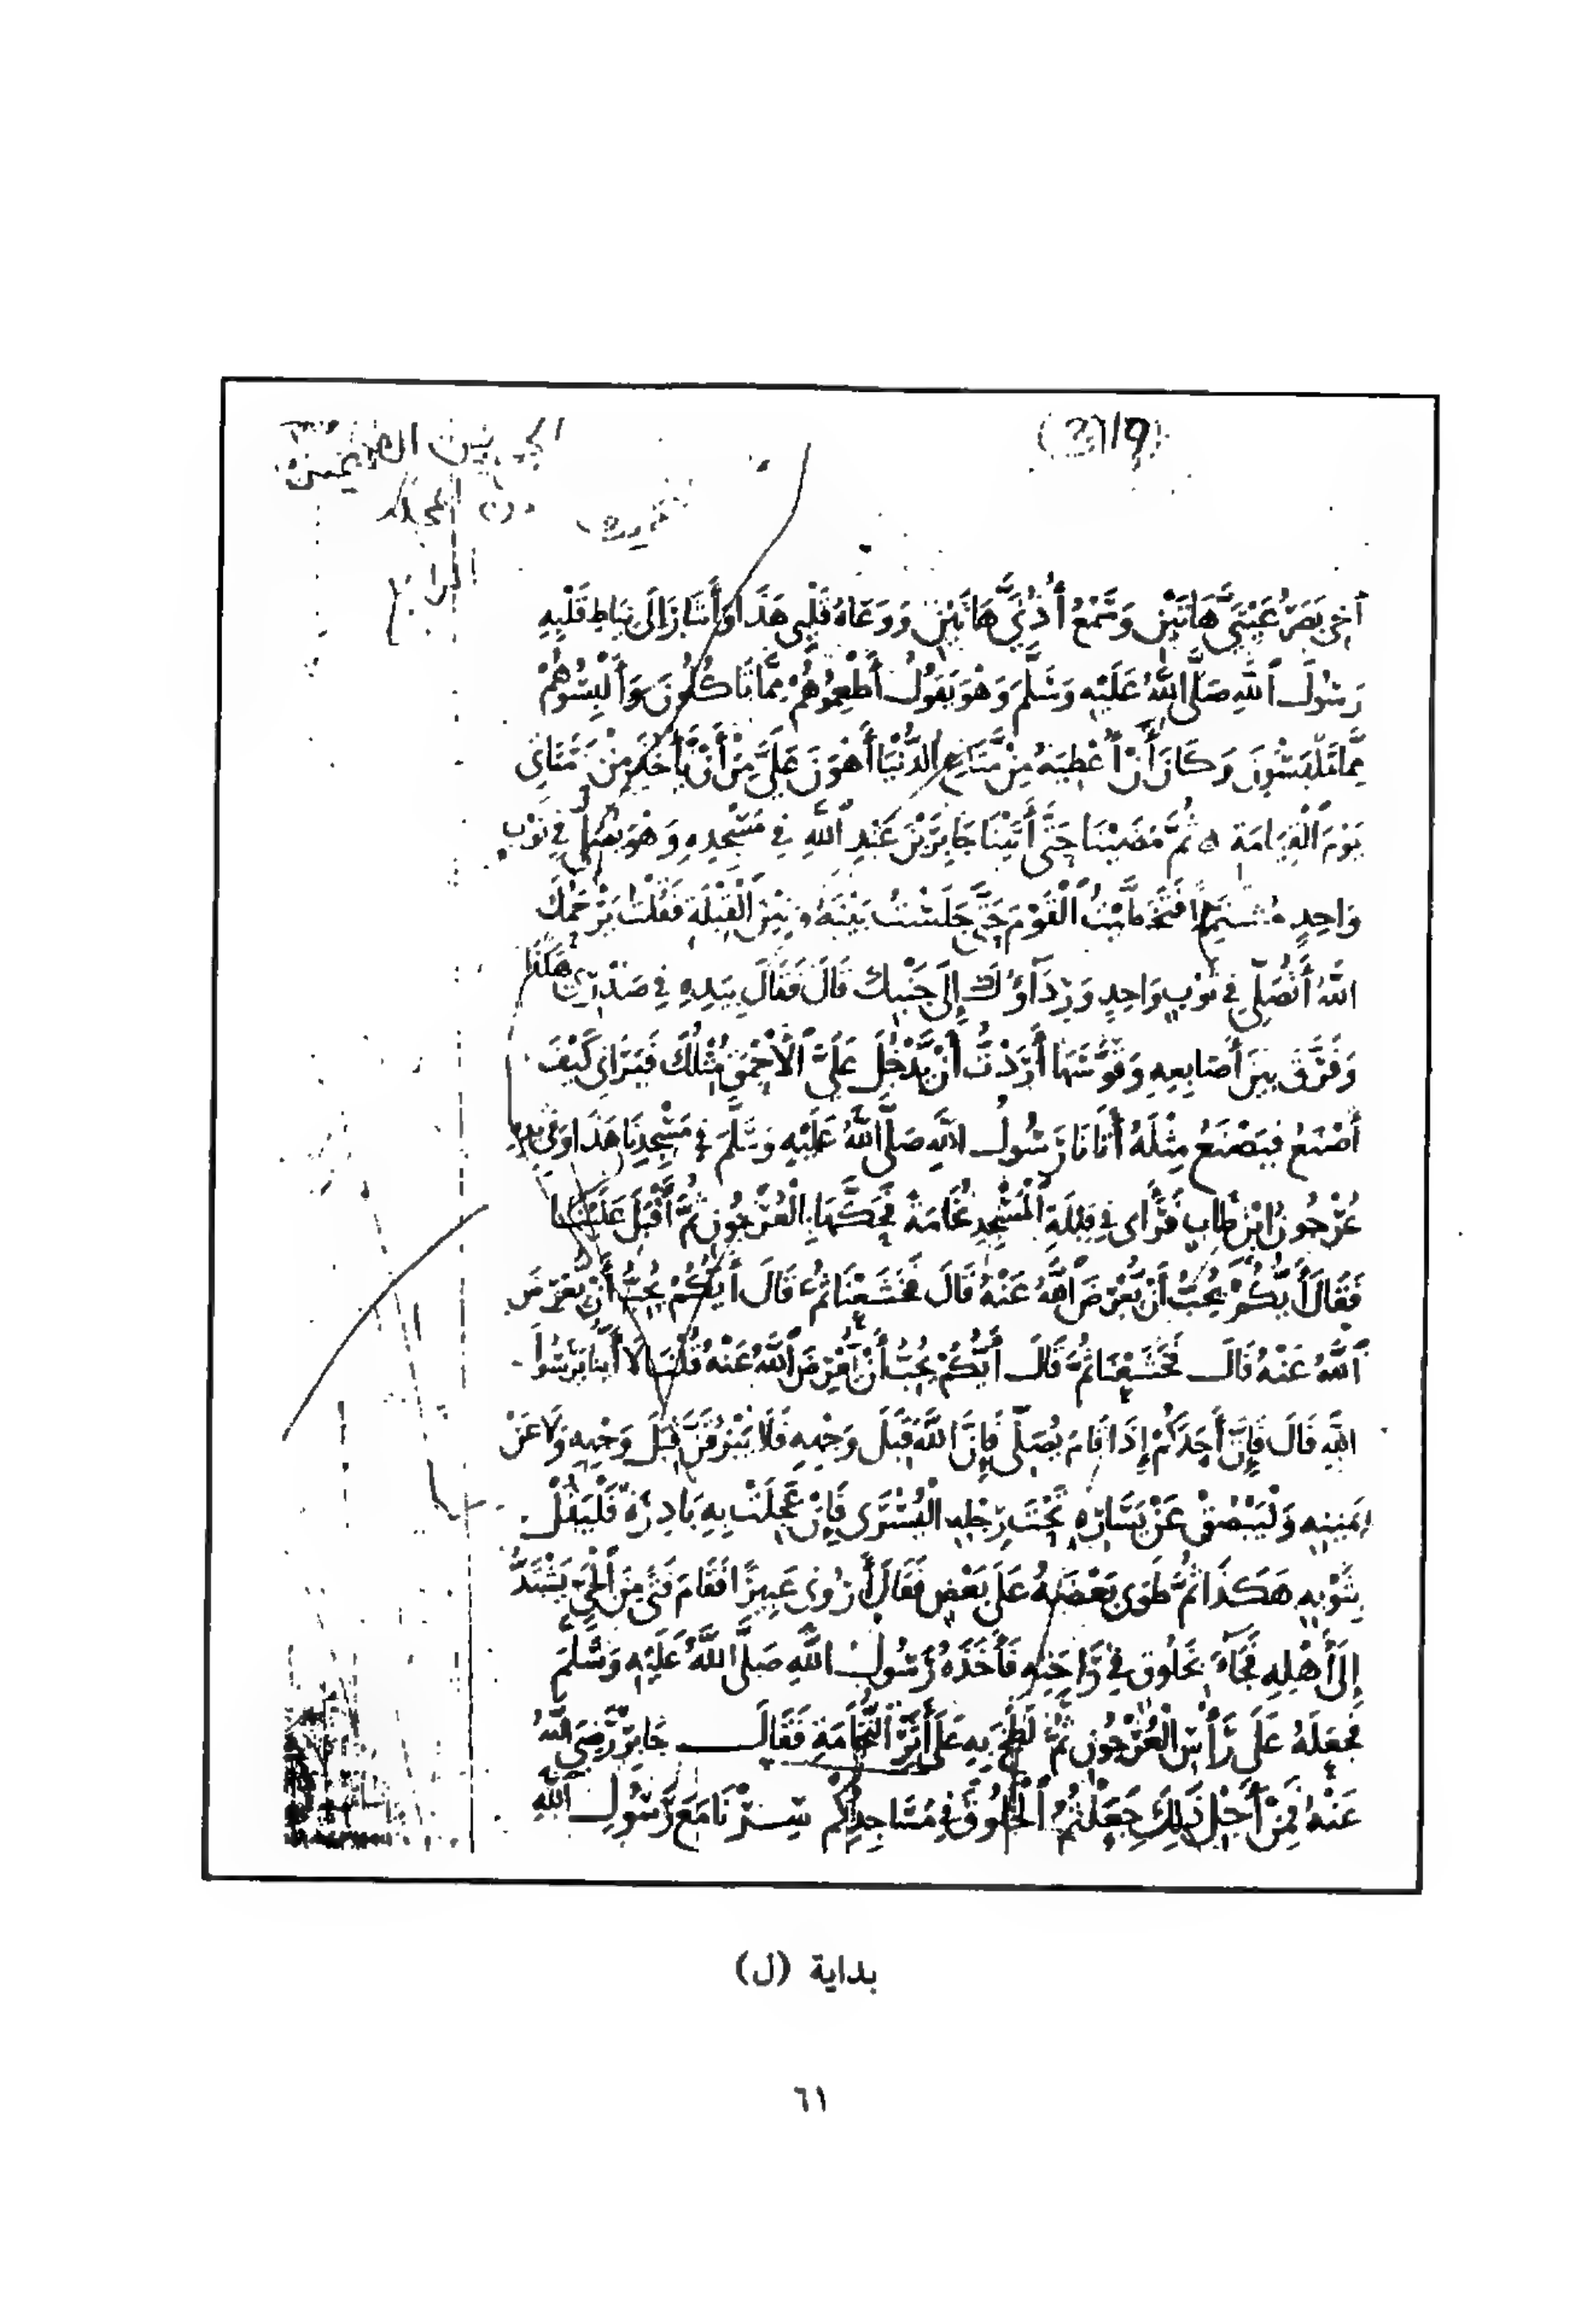 الجمع بين الصحيحين
من المجلد
الرابع
أخي بَصَرُ عَيْنَيَّ هَاتَيْنِ وَسَمْعُ أُذُنَيَّ هَاتَيْنِ وَوَعَاهُ قَلْبِي هَذَا وَأَشَارَ إِلَى نِيَاطِ قَلْبِهِ
رَسُولَ اللَّهِ صَلَّى اللَّهُ عَلَيْهِ وَسَلَّمَ وَهْوَ يَقُولُ أَطْعِمُوهُمْ مِمَّا تَاكُلُونَ وَأَلْبِسُوهُمْ
مِمَّا تَلْبَسُونَ وَكَانَ أَنْ أُعْطِيَهُ مِنْ مَّتَاعِ الدُّنْيَا أَهْوَنَ عَلَيَّ مِنْ أَنْ يَأْخُذَ مِنْ حَسَنَاتِي
يَوْمَ الْقِيَامَةِ ه ثُمَّ مَضَيْنَا حَتَّى أَتَيْنَا جَابِرَ بْنَ عَبْدِ اللَّهِ فِي مَسْجِدِهِ وَهْوَ يُصَلِّي فِي ثَوْبٍ
وَاحِدٍ مُشْتَمِلًا فَتَخَطَّيْتُ الْقَوْمَ حَتَّى جَلَسْتُ بَيْنَهُ وَبَيْنَ الْقِبْلَةِ فَقُلْتُ يَرْحَمُكَ
اللَّهُ أَتُصَلِّي فِي ثَوْبٍ وَاحِدٍ وَرِدَآؤُكَ إِلَى جَنْبِكَ قَالَ فَقَالَ بِيَدِهِ فِي صَدْرِي هَكَذَا
وَفَرَّقَ بَيْنَ أَصَابِعِهِ وَقَوَّسَهَا أَرَدْتُ أَنْ يَّدْخُلَ عَلَيَّ الْأَحْمَقُ مِثْلُكَ فَيَرَانِي كَيْفَ
أَصْنَعُ فَيَصْنَعُ مِثْلَهُ أَتَانَا رَسُولُ اللَّهِ صَلَّى اللَّهُ عَلَيْهِ وَسَلَّمَ فِي مَسْجِدِنَا هَذَا وَفِي يَدِهِ
عُرْجُونُ ابْنِ طَابٍ فَرَأَى فِي قِبْلَةِ الْمَسْجِدِ نُخَامَةً فَحَكَّهَا بِالْعُرْجُونِ ثُمَّ أَقْبَلَ عَلَيْنَا
فَقَالَ أَيُّكُمْ يُحِبُّ أَنْ يُّعْرِضَ اللَّهُ عَنْهُ قَالَ فَخَشَعْنَا ثُمَّ قَالَ أَيُّكُمْ يُحِبُّ أَنْ يُّعْرِضَ
اللَّهُ عَنْهُ قَالَ فَخَشَعْنَا ثُمَّ قَالَ أَيُّكُمْ يُحِبُّ أَنْ يُّعْرِضَ اللَّهُ عَنْهُ قُلْنَا لَا أَيُّنَا يَرَسُولَ
اللَّهِ قَالَ فَإِنَّ أَحَدَكُمْ إِذَا قَامَ يُصَلِّي فَإِنَّ اللَّهَ قِبَلَ وَجْهِهِ فَلَا يَبْزُقَنَّ قِبَلَ وَجْهِهِ وَلَا عَنْ
يَمِينِهِ وَلْيَبْصُقْ عَنْ يَسَارِهِ تَحْتَ رِجْلِهِ الْيُسْرَى فَإِنْ عَجِلَتْ بِهِ بَادِرَةٌ فَلْيَقُلْ
بِثَوْبِهِ هَكَذَا ثُمَّ طَوَى بَعْضَهُ عَلَى بَعْضٍ فَقَالَ أَرُونِي عَبِيرًا فَقَامَ فَتًى مِنَ الْحَيِّ يَشْتَدُّ
إِلَى أَهْلِهِ فَجَآءَ بِخَلُوقٍ فِي رَاحَتِهِ فَأَخَذَهُ رَسُولُ اللَّهِ صَلَّى اللَّهُ عَلَيْهِ وَسَلَّمَ
فَجَعَلَهُ عَلَى رَأْسِ الْعُرْجُونِ ثُمَّ لَطَخَ بِهِ عَلَى أَثَرِ النُّخَامَةِ فَقَالَ جَابِرٌ رَّضِيَ اللَّهُ
عَنْهُ فَمِنْ أَجْلِ ذَلِكَ جَعَلْتُمُ الْخَلُوقَ فِي مَسَاجِدِكُمْ سِرْنَا مَعَ رَسُولِ اللَّهِ
بداية (ل)
٦١